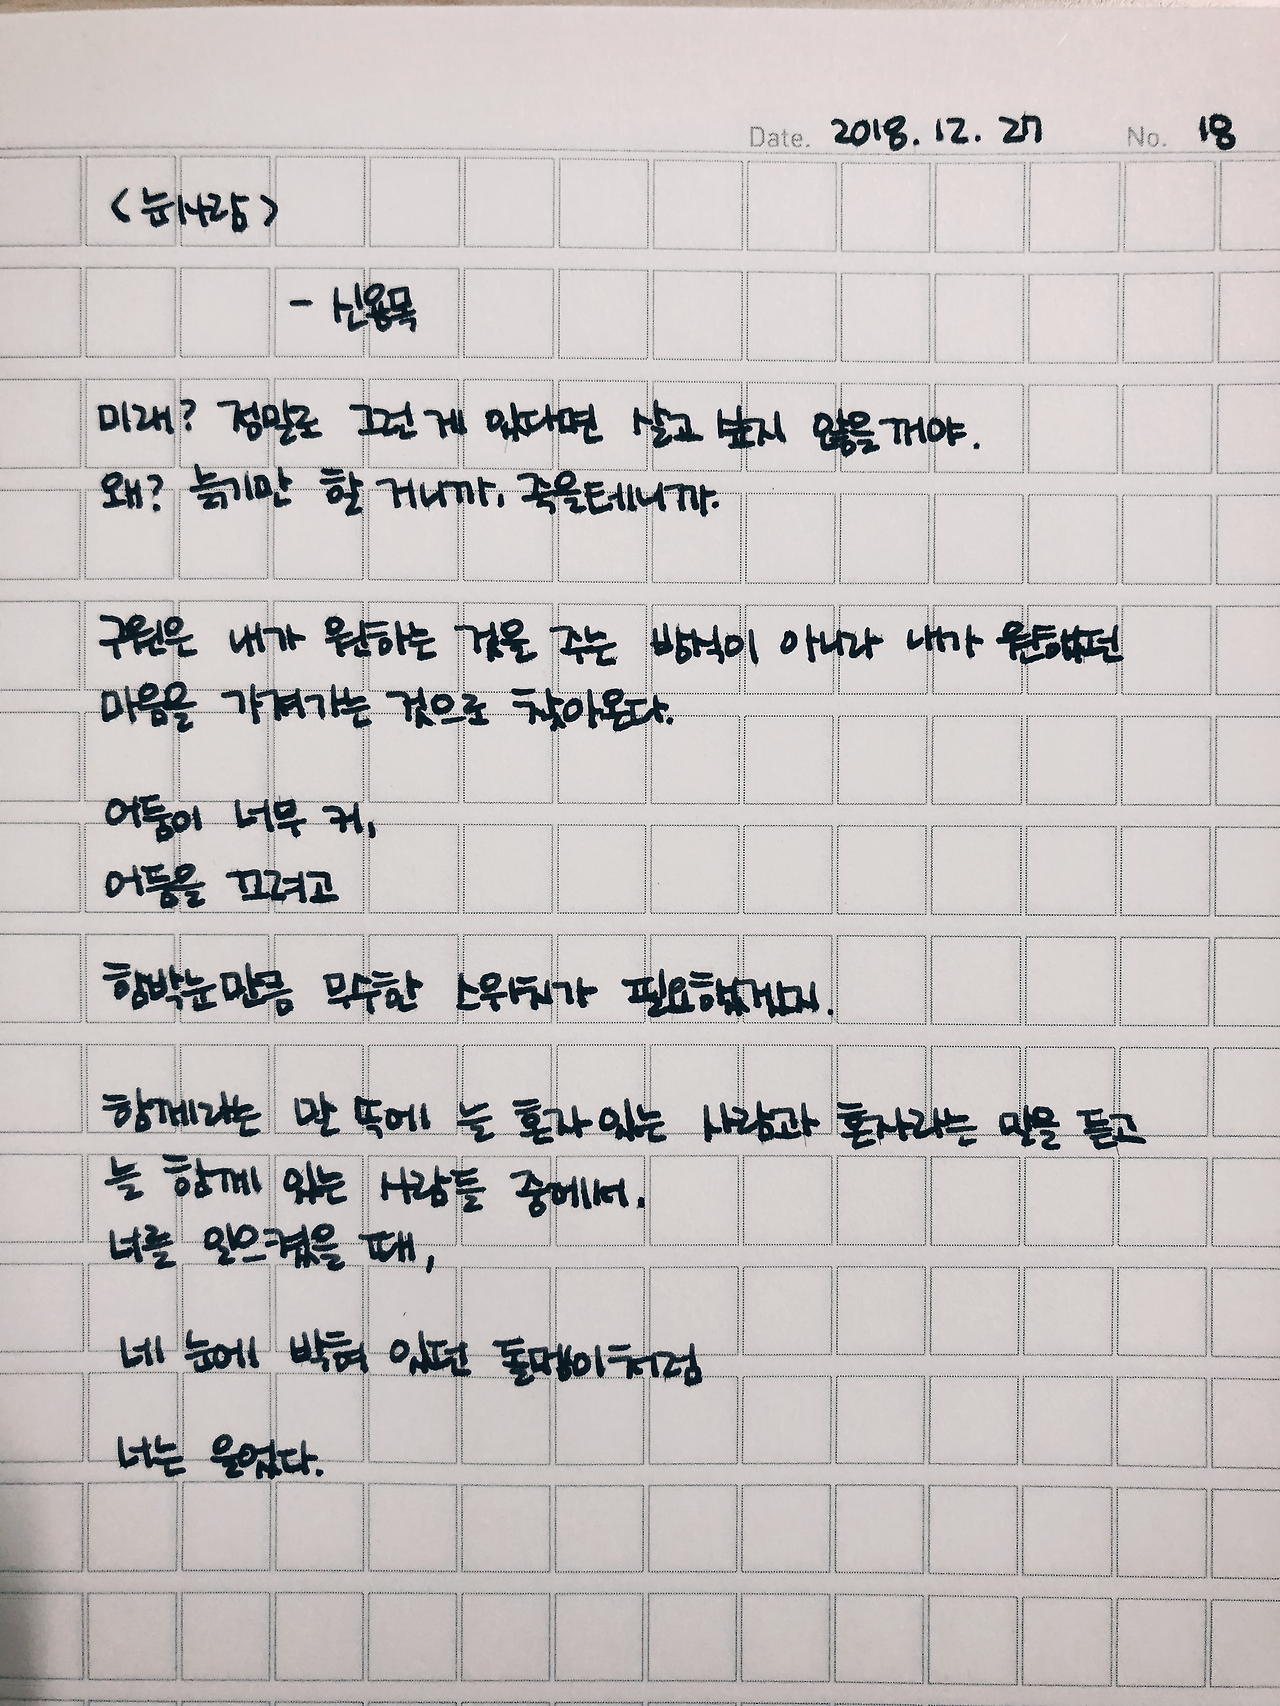 Date. 2018.12.27 No. 18
<눈사람>
- 신용목
미래? 정말로 그런 게 있다면 살고 싶지 않을꺼야.
왜? 늙기만 할 거니까, 죽을테니까.
구원은 내가 원하는 것을 주는 방식이 아니라 내가 원했던
마음을 가져가는 것으로 찾아온다.
어둠이 너무 커,
어둠을 끄려고
함박눈만큼 무수한 스위치가 필요했겠지.
함께라는 말 뜩에 늘 혼자 있는 사람과 혼자라는 말을 듣고
늘 함께 있는 사람들 중에서.
너를 일으켰을 때,
네 눈에 박혀 있던 돌멩이처럼
너는 울었다.